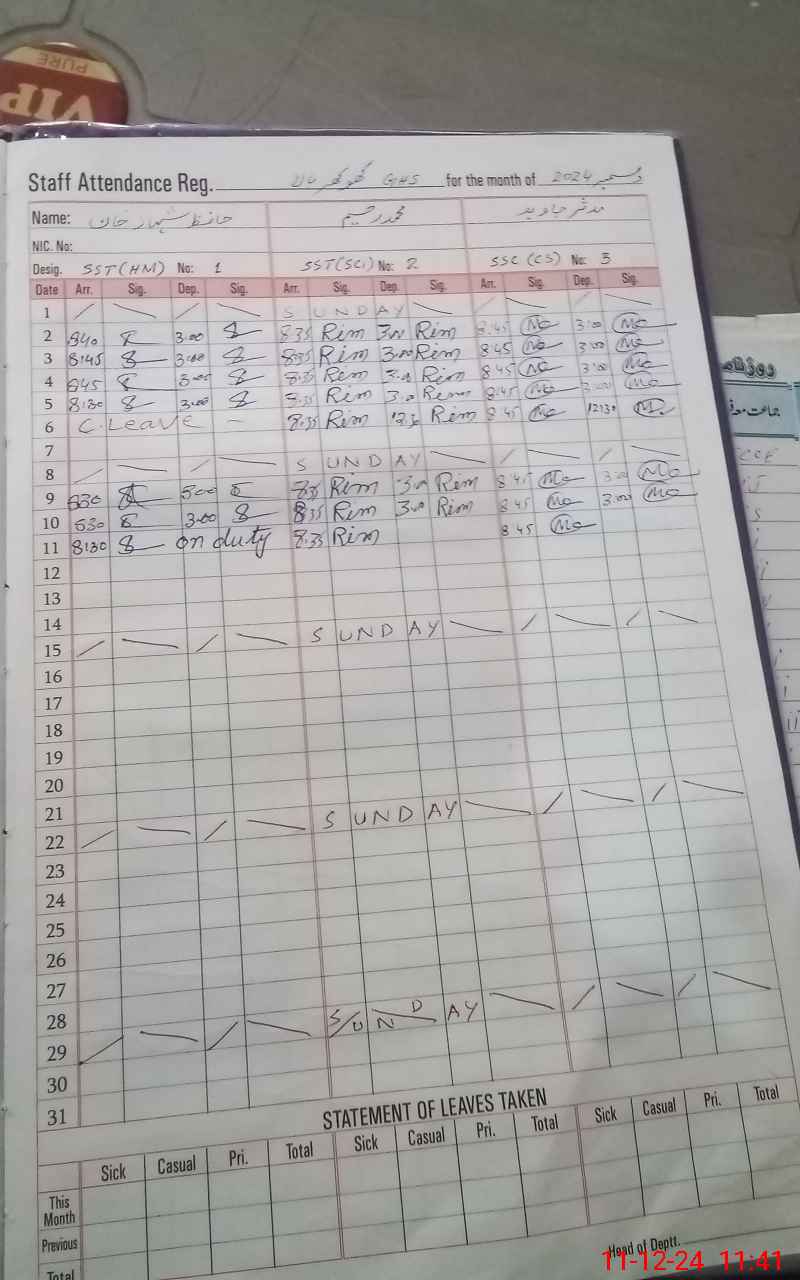 PURE
VIP
Staff Attendance Reg. گھوکھر بالا GHS for the month of دسمبر 2024
Name: حافظ شہباز خان محمد رحیم مدثر جاوید
NIC. No:
Desig. SST(HM) No: 1 SST(SCi) No: 2 SSC (CS) No: 3
Date Arr. Sig. Dep. Sig. Arr. Sig. Dep. Sig. Arr. Sig. Dep. Sig.
1 SUNDAY
2 840 3:00 8:35 Rim 3:00 Rim 8:45 3:00
3 8:45 3:00 8:35 Rim 3:00 Rim 8 45 3:00
4 845 3:00 8:35 Rim 3:0 Rim 8 45 3:00
5 8:30 3:00 8:35 Rim 3:0 Rim 8:45 3:00
6 C. Leave — 8:35 Rim 12:30 Rim 8 45 12:30
7
8 SUNDAY
9 830 835 Rim 3:00 Rim 8 45 3:00
10 830 3:00 835 Rim 3:00 Rim 8 45 3:00
11 8:30 on duty 8:35 Rim 8 45
12
13
14
15 SUNDAY
16
17
18
19
20
21
22 SUNDAY
23
24
25
26
27
28
29 SUNDAY
30
31
STATEMENT OF LEAVES TAKEN
Sick Casual Pri. Total Sick Casual Pri. Total Sick Casual Pri. Total
This Month
Previous
Total
Head of Deptt.
11-12-24 11:41